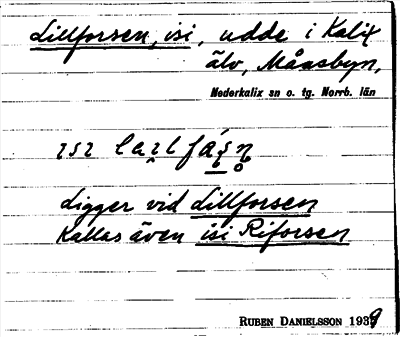 Lillforsen, isi, udde i Kalix
älv, Månsbyn,
Nederkalix sn o. tg. Norrb. län
Ligger vid Lillforsen
Kallas även isi Riforsen
RUBEN DANIELSSON 1939